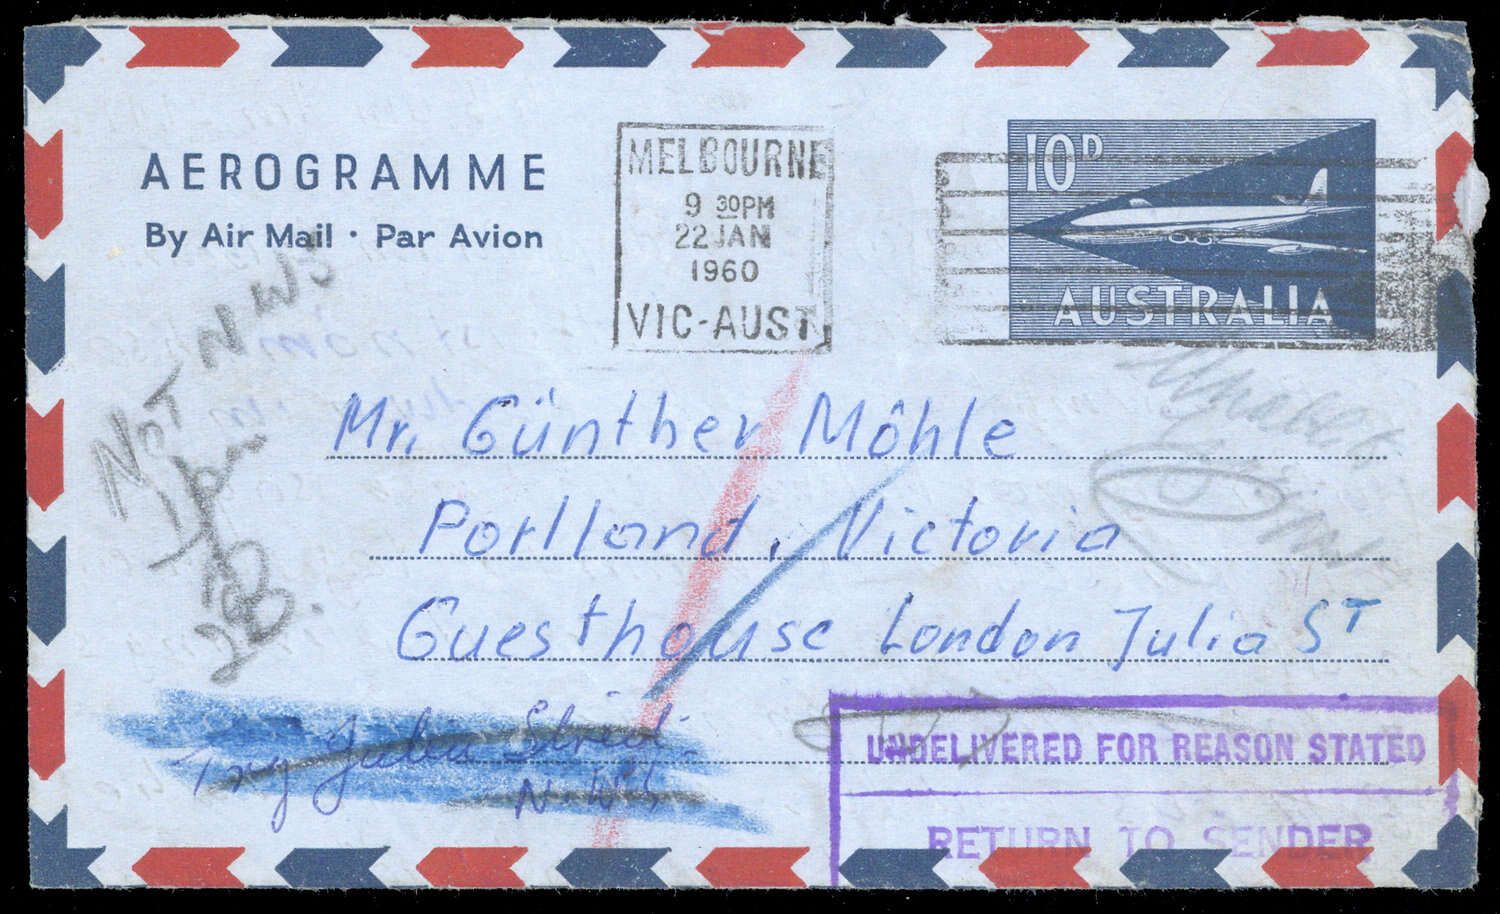 AEROGRAMME
By Air Mail · Par Avion
MELBOURNE
9 30PM
22 JAN
1960
VIC-AUST
10D
AUSTRALIA
N.W.S
NOT
28.
Mr. Günther Möhle
Portland, Victoria
Guesthouse London Julia ST
Try Julia Street
N.W.S
UNDELIVERED FOR REASON STATED
RETURN TO SENDER